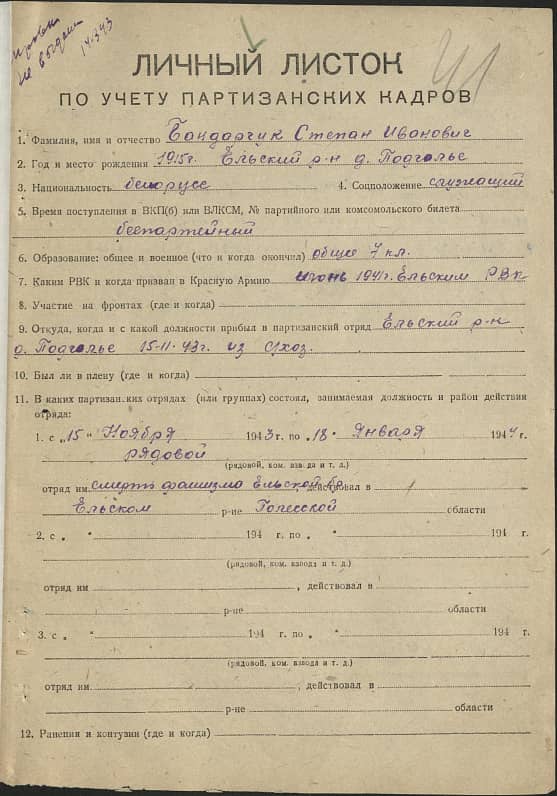 не выдан
14.3.43
41
ЛИЧНЫЙ ЛИСТОК
ПО УЧЕТУ ПАРТИЗАНСКИХ КАДРОВ
1. Фамилия, имя и отчество Бондарчик Степан Иванович
2. Год и место рождения 1915г. Ельский р-н д. Подгалье
3. Национальность белорусс 4. Соцположение служащий
5. Время поступления в ВКП(б) или ВЛКСМ, № партийного или комсомольского билета
беспартейный
6. Образование: общее и военное (что и когда окончил) общее 7 кл.
7. Каким РВК и когда призван в Красную Армию июнь 1941г. Ельским РВК
8. Участие на фронтах (где и когда)
9. Откуда, когда и с какой должности прибыл в партизанский отряд Ельский р-н
д. Подгалье 15-11-43г. из с/хоз.
10. Был ли в плену (где и когда)
11. В каких партизанских отрядах (или группах) состоял, занимаемая должность и район действия
отряда:
1. с „15" Ноября 1943г. по „18" Января 1944г.
рядовой
(рядовой, ком. взвода и т. д.)
отряд им. смерть фашизма Ельской бр. действовал в
Ельском р-не Полесской области
2. с „ " 194 г. по „ " 194 г.
(рядовой, ком. взвода и т. д.)
отряд им , действовал в
р-не области
3. с „ " 194 г. по „ " 194 г.
(рядовой, ком. взвода и т. д.)
отряд им. , действовал в
р-не области
12. Ранения и контузии (где и когда)